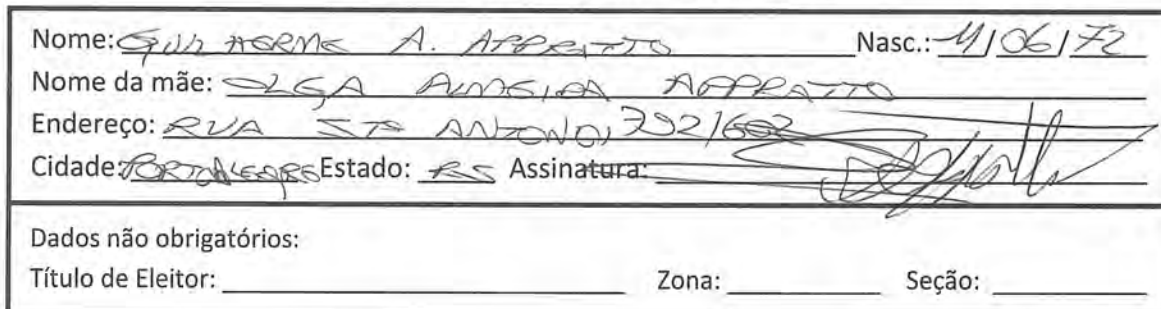 Nome: GUILHERME A. APPRATTO Nasc.: 11/06/72
Nome da mãe: OLGA ALMEIDA APPRATTO
Endereço: RUA STO ANTONIO, 792/602
Cidade: PORTO ALEGRE Estado: RS Assinatura:
Dados não obrigatórios:
Título de Eleitor: Zona: Seção: